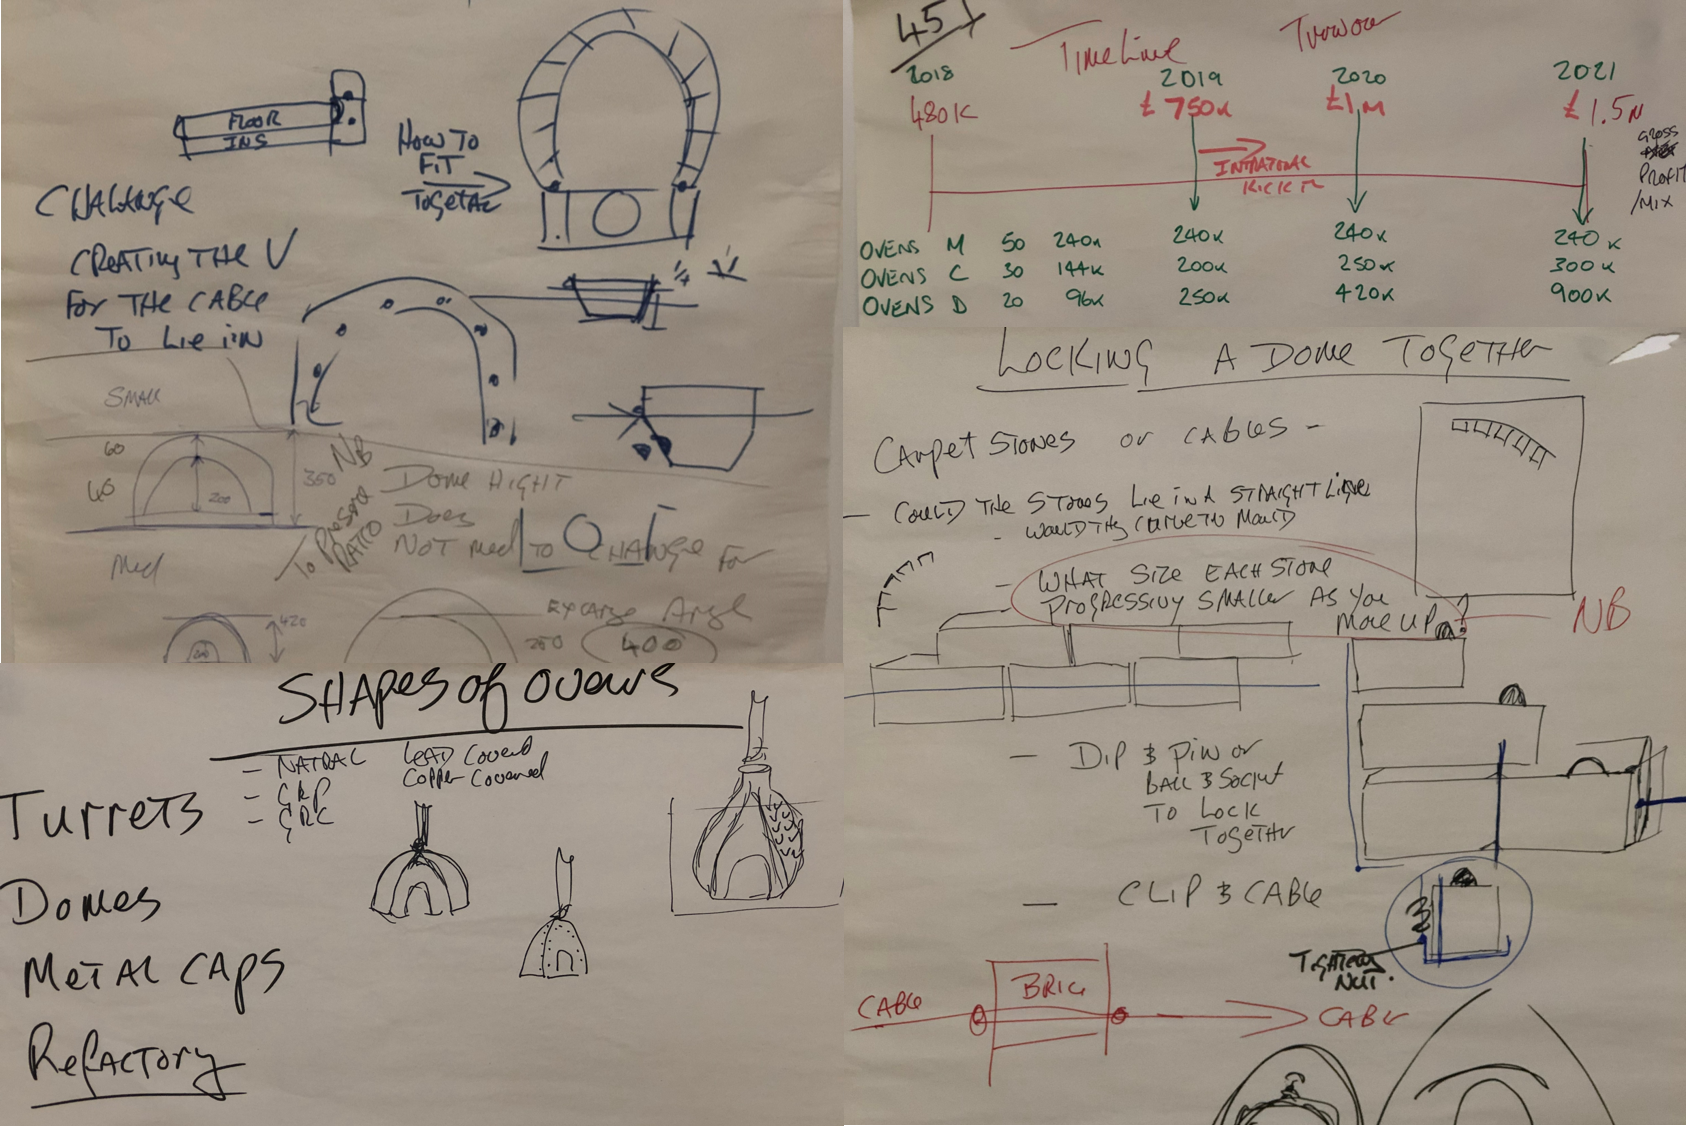 FLOOR
INS
HOW TO
FIT
TOGETAL
CHALANGE
CREATING THE V
FOR THE CABLE
TO LIE IN
SMALL
60
60
200
350
NB
DOME HIGHT
DOES
NOT need TO CHANGE FOR
TO
RATIO
Med
200
420
250
400
451
TIMELINE
2018
2019
2020
2021
480K
£750K
£1M
£1.5M
GROSS
PROFIT
/MIX
OVENS M 50 240K 240K 240K 240K
OVENS C 30 144K 200K 250K 300K
OVENS D 20 96K 250K 420K 900K
LOCKING A DOME TOGETHER
CARPET STONES or CABLES -
- COULD THE STONES LIE IN A STRAIGHT LINE
- WOULD THEY CURVE TO MOULD
- WHAT SIZE EACH STONE
PROGRESSIVY SMALLER AS YOU
MOVE UP
NB
- DIP & PIN or
BALL & SOCKET
TO LOCK
TOGETHER
- CLIP & CABLE
NUT.
CABLE
BRICK
CABLE
SHAPES of OVENS
- NATRAL
- GRP
- GRC
LEAD Covered
COPPER Covered
TURRETS
DOMES
METAL CAPS
REFACTORY